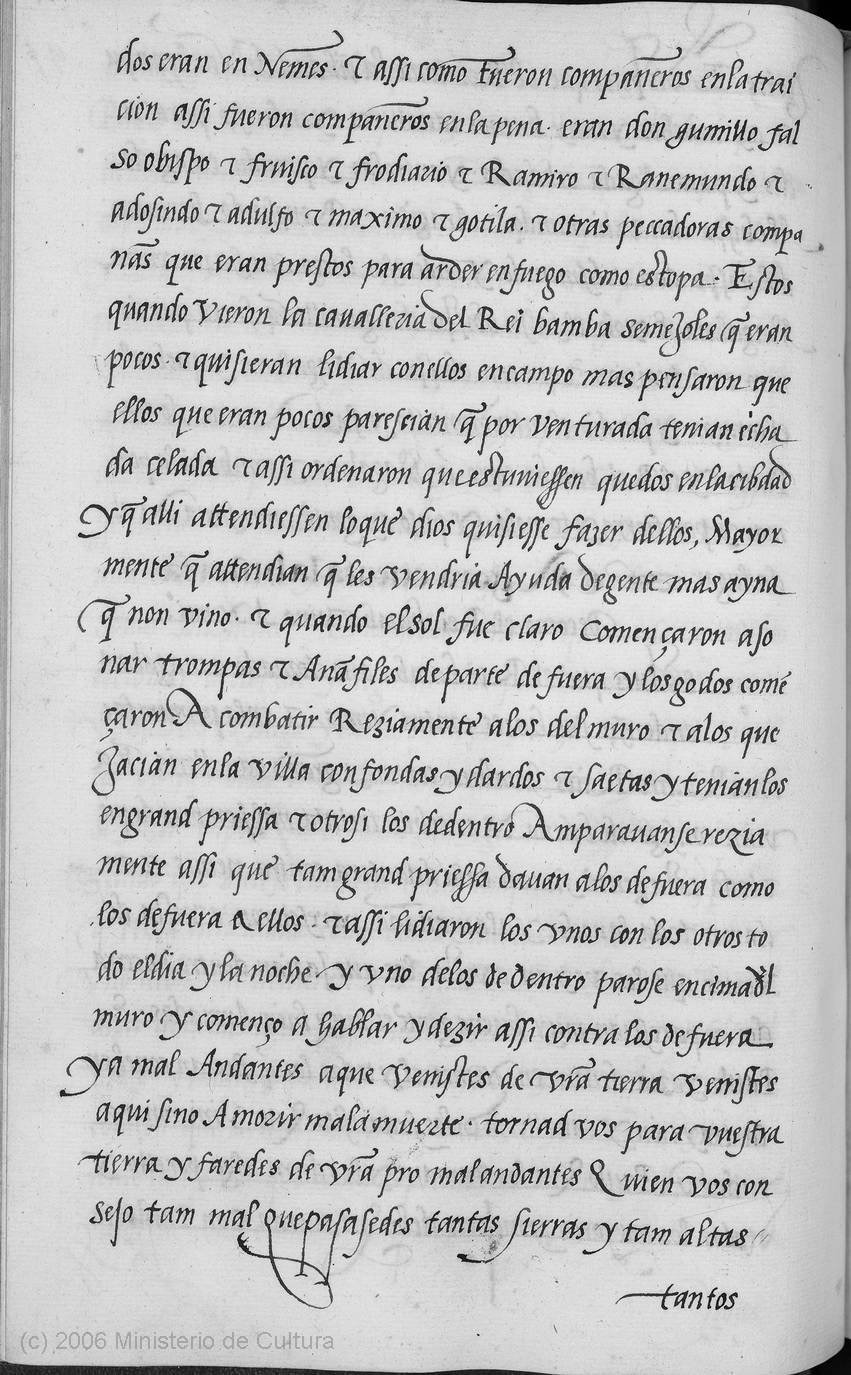 dos eran en Nem̃es. τ assi como Fueron compañeros enla trai
cion assi fueron compañeros enla pena. eran don gumillo fal
so obispo τ fruisco τ frodiario τ Ramiro τ Ranemundo τ
adosindo τ adulfo τ maximo τ gotila. τ otras peccadoras compa
nãs que eran prestos para arder enfuego como estopa. Estos
quando Vieron la cavalleria del Rei bamba semejoles q̃ eran
pocos. τ quisieran lidiar conellos encampo mas pensaron que
ellos que eran pocos parescian q̃ por Venturada tenian echa
da celada τ assi ordenaron que estuuiessen quedos enlacibdad
y q̃ alli attendiessen loque dios quisiesse fazer dellos, Mayor
mente q̃ attendian q̃ les vendria Ayuda degente mas ayna
q̃ non vino. τ quando elsol fue claro Començaron aso
nar trompas τ Anãfiles departe de fuera y losgodos comẽ
çaron A combatir Reziamente alos delmuro τ alos que
Jacian enla villa confondas y dardos τ saetas y tenianlos
engrand priessa τ otrosi los dedentro Amparavanse rezia
mente assi que tamgrand priessa davan alos defuera como
los defuera a ellos. τ assi lidiaron los vnos con los otros to
do eldia y la noche. y vno delos dedentro parose encima dl
muro y començo a hablar y dezir assi contra los defuera
ya mal Andantes aque Venistes de vr̃a tierra venistes
aqui sino A morir mala muerte. tornad vos para vuestra
tierra y faredes de vr̃a pro malandantes Quien vos con
sejo tam mal que pasasedes tantas sierras y tam altas
tantos
(c) 2006 Ministerio de Cultura